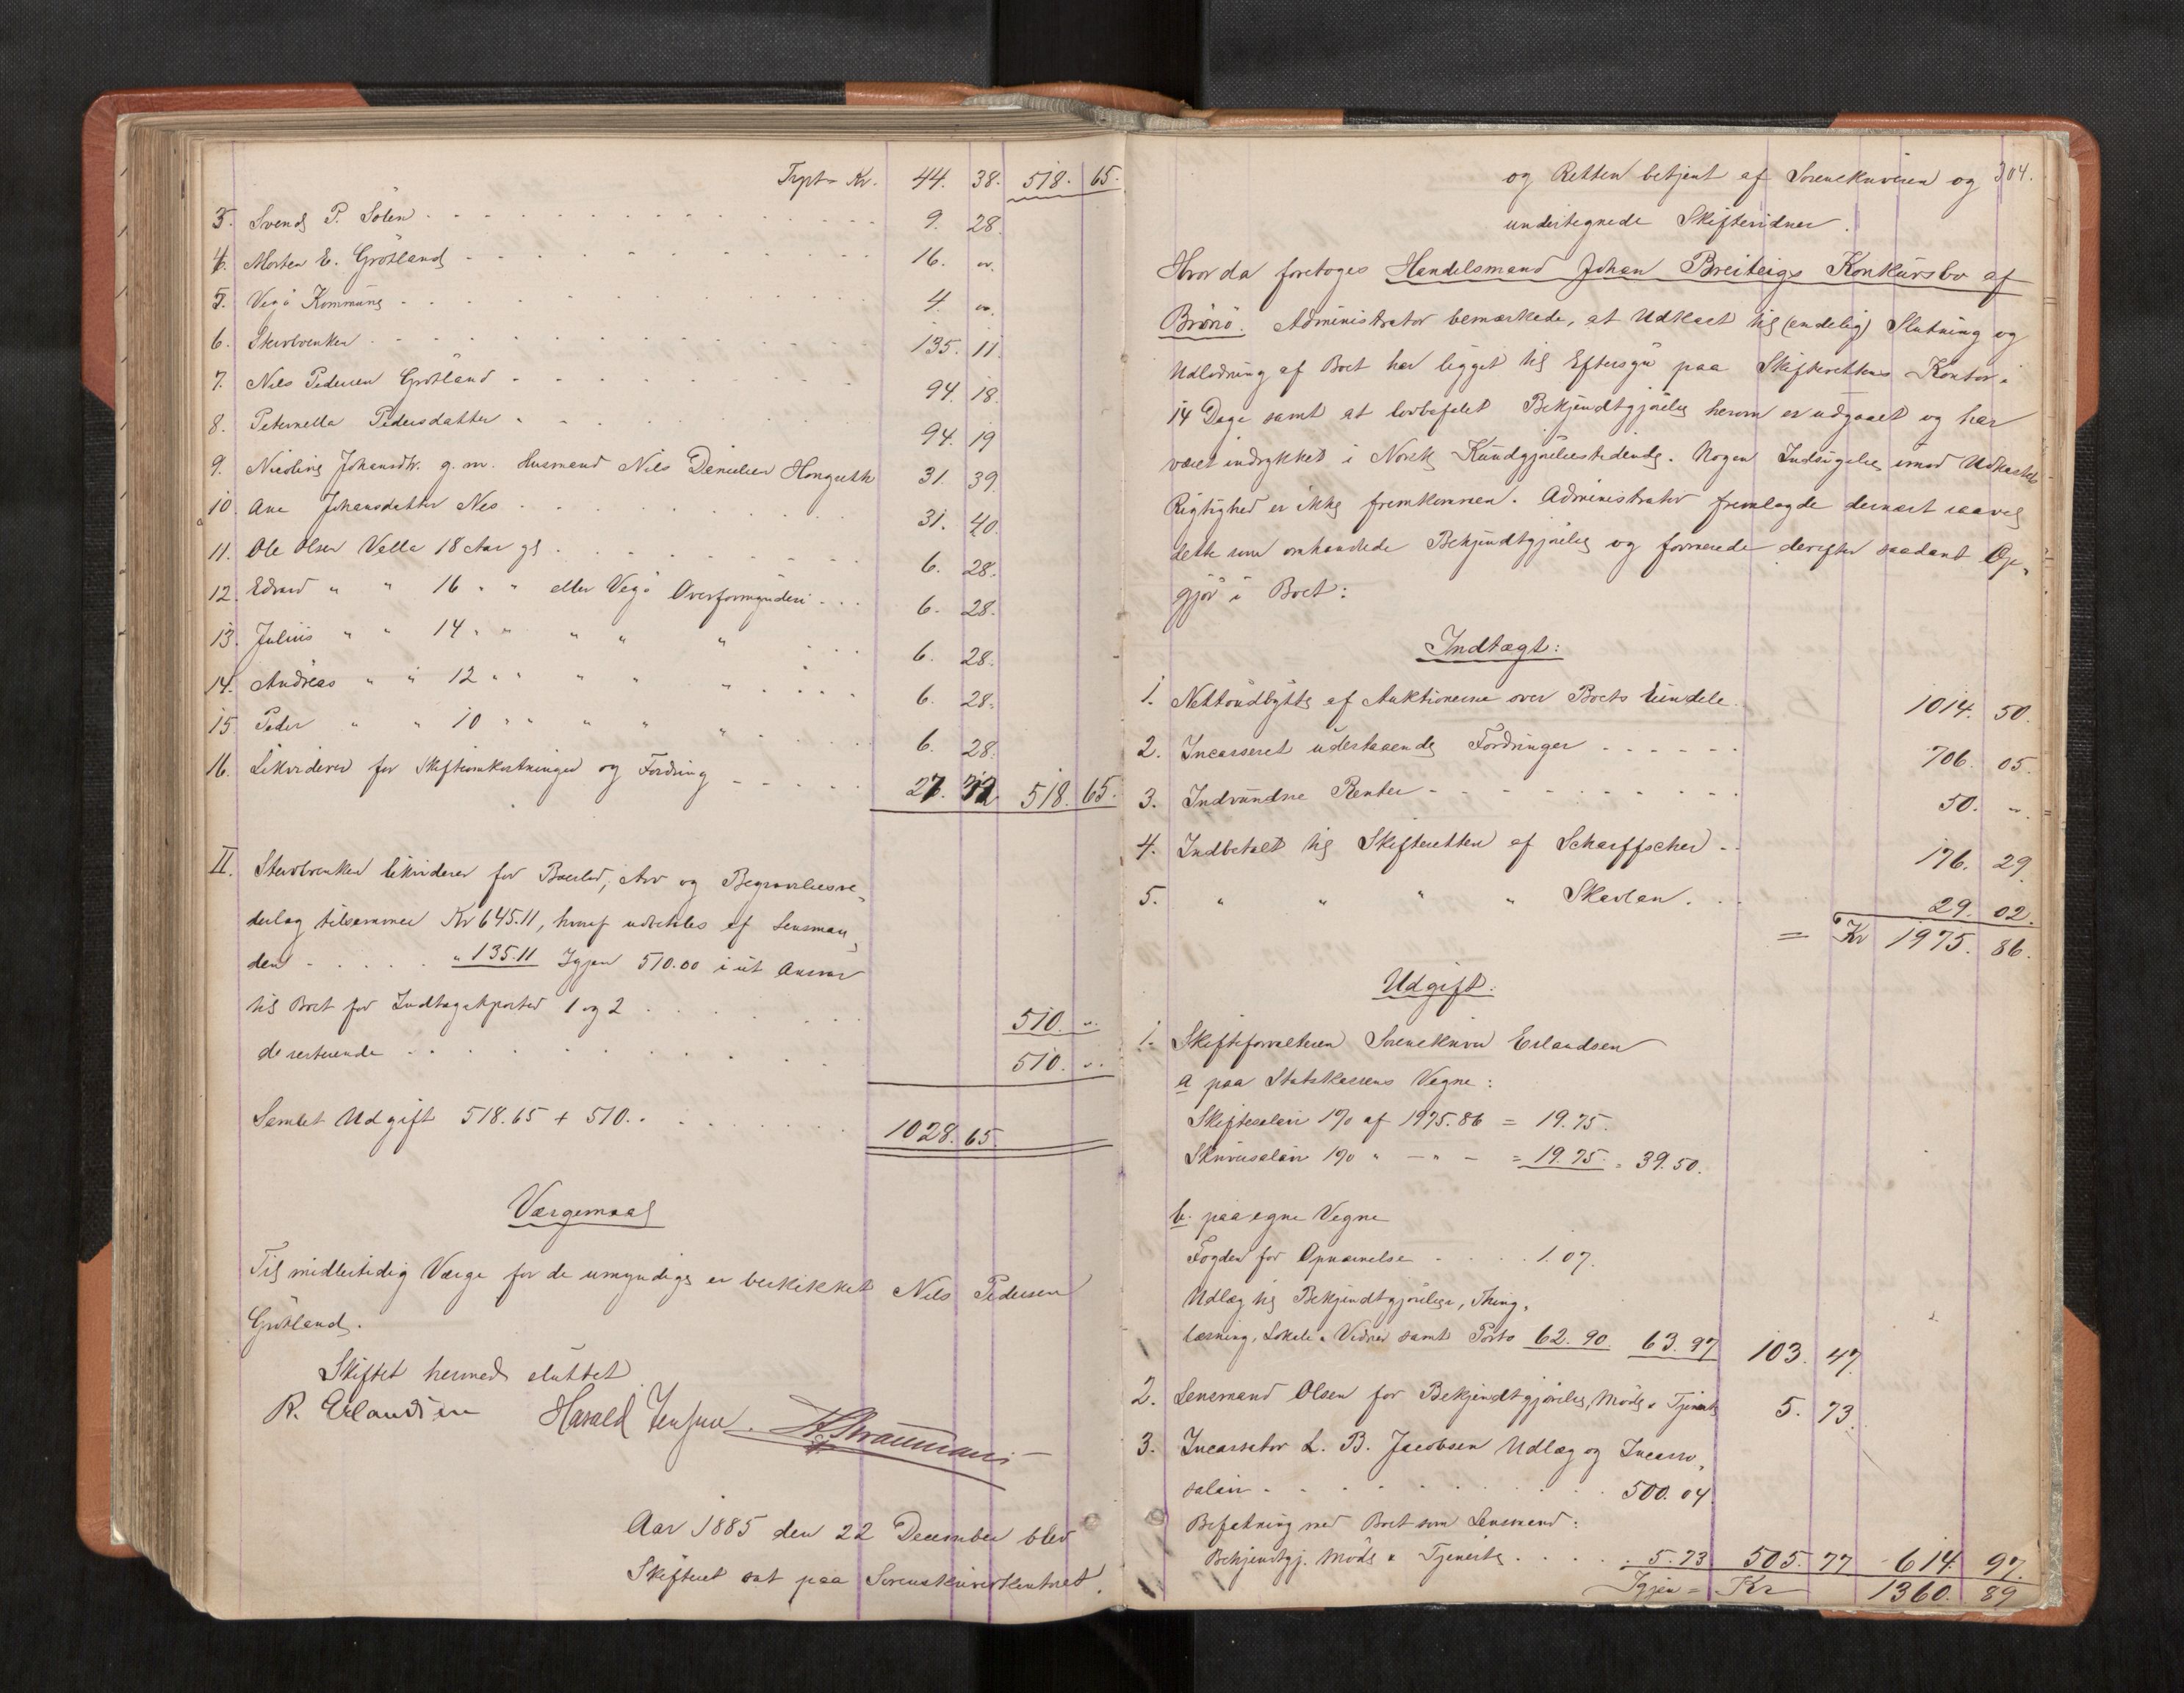 Trspt Kr. 44. 38. 518. 65.
3. Svend P. Solem 9. 28.
4. Morten E. Grötland 16. "
5. Vegö Kommune 4. "
6. Stervbenken 135. 11.
7. Nils Pedersen Grötland 94. 18.
8. Peternella Pedersdatter 94. 19
9. Nicoline Johansdtr. g. m. Husmand Nils Danielsen Hongseth 31. 39.
10 Ane Johansdatter Nes 31. 40.
11. Ole Olsen Valla 18 Aar gl 6. 28.
12. Edvard " " 16 " " eller Vegö Overformynderi 6. 28.
13. Julius " " 14 " " " " " 6. 28.
14. Andreas " " 12 " " " " " 6. 28.
15 Peder " " 10 " " " " " 6. 28.
16. Likviderer for Skifteomkostninger og Fordring 27. 32 518. 65.
II. Stervbenken likviderer for Boeslod, Arv og Begravelsesve-
derlag tilsammen Kr 645.11, hvoraf udbetales af Lensman-
den " 135.11 Igjen 510.00 i sit Ansvar
til Boet for Indtægtsposter 1 og 2 510. "
de resterende 510. "
Samlet Udgift 518.65 + 510. 1028. 65.
Værgemaal
Til midlertidig Værge for de umyndige er beskikket Nils Pedersen
Grötland.
Skiftet hermed sluttet
R. Erlandsen Harald Jensen.
Aar 1885 den 22 December blev
Skifteret sat paa Sorenskriverkontoret
og Retten betjent af Sorenskriveren og 304.
undertegnede Skiftevidner.
Hvor da foretoges Handelsmand Johan Breiteigs Konkursbo af
Brönö. Administrator bemærkede, at Udkast til (endelig) Slutning og
Udlodning af Boet har ligget til Eftersyn paa Skifterettens Kontor i
14 Dage samt at lovbefalet Bekjendtgjörelse herom er udgaaet og har
været indrykket i Norsk Kundgjörelsestidende. Nogen Indsigelse imod Udkastets
Rigtighed er ikke fremkommen. Administrator fremlagde dernæst saavel
dette som omhandlede Bekjendtgjörelse og formerede derefter saadant Op-
gjör i Boet:
Indtægt:
1. Nettoudbytte af Auktionerne over Boets Eiendele 1014. 50.
2. Incasseret udestaaende Fordringer 706. 05.
3. Indvundne Renter 50. "
4. Indbetalt til Skifteretten af Scharffscher 176. 29.
5. " " " " Skavlan. 29. 02.
= Kr 1975. 86.
Udgift.
1. Skifteforvalteren Sorenskriver Erlandsen
a paa Statskassens Vegne:
Skiftesalær 1% af 1975.86 = 19.75.
Skriversalær 1% " — " — = 19.75 = 39.50.
b. paa egne Vegne
Fogden for Opnævnelse 1.07.
Udlæg til Bekjendtgjörelser, Thing-
læsning, Lokale & Vidner samt Porto 62. 90. 63. 97 103. 47.
2. Lensmand Olsen for Bekjendtgjörelse, Möde & Tjeneste 5. 73.
3. Incassator L. B. Jacobsen Udlæg og Incasso-
salær 500. 04.
Befatning med Boet som Lensmand:
Bekjendtgj. Möde & Tjeneste 5.73 505. 77 614. 97.
Igjen = Kr 1360. 89